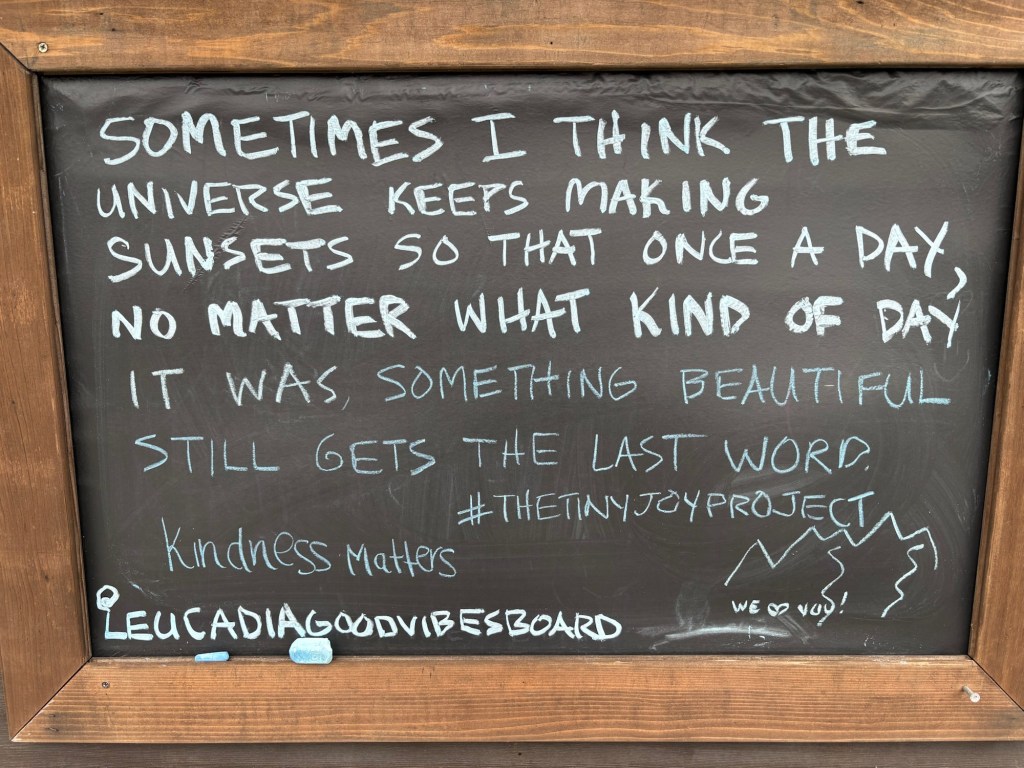 SOMETIMES I THINK THE
UNIVERSE KEEPS MAKING
SUNSETS SO THAT ONCE A DAY,
NO MATTER WHAT KIND OF DAY
IT WAS, SOMETHING BEAUTIFUL
STILL GETS THE LAST WORD.
#THETINYJOYPROJECT
Kindness Matters
WE ♡ YOU!
LEUCADIAGOODVIBESBOARD